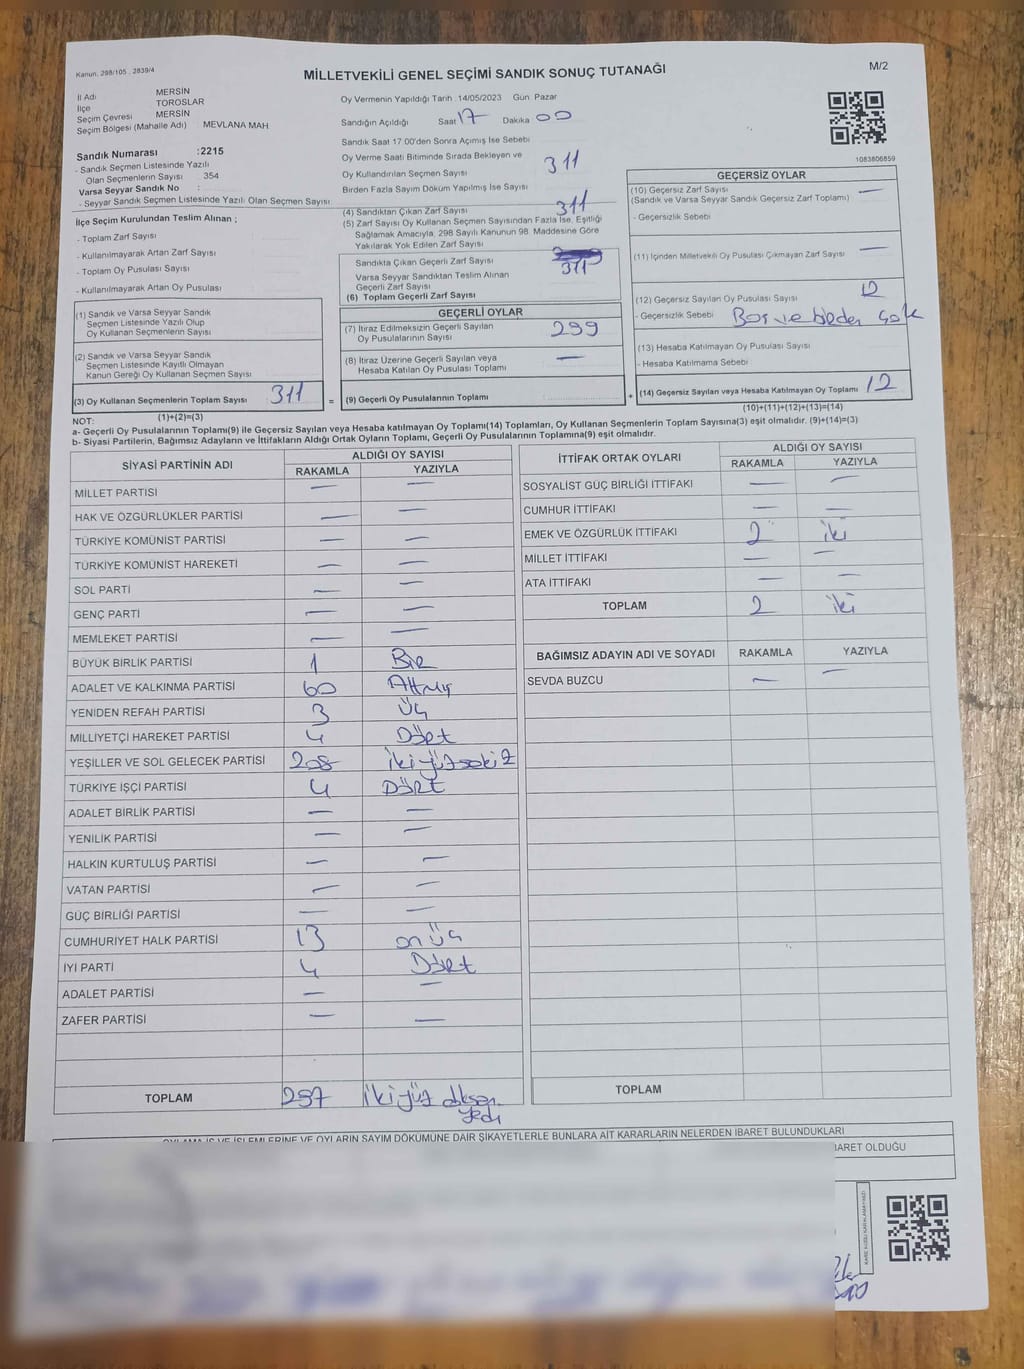 Kanun. 298/105 . 2839/4
MİLLETVEKİLİ GENEL SEÇİMİ SANDIK SONUÇ TUTANAĞI
M/2
İl Adı MERSİN
İlçe TOROSLAR
Seçim Çevresi MERSİN
Seçim Bölgesi (Mahalle Adı) MEVLANA MAH.
Sandık Numarası :2215
- Sandık Seçmen Listesinde Yazılı
Olan Seçmenlerin Sayısı : 354
Varsa Seyyar Sandık No :
- Seyyar Sandık Seçmen Listesinde Yazılı Olan Seçmen Sayısı
İlçe Seçim Kurulundan Teslim Alınan ;
- Toplam Zarf Sayısı
- Kullanılmayarak Artan Zarf Sayısı
- Toplam Oy Pusulası Sayısı
- Kullanılmayarak Artan Oy Pusulası
(1) Sandık ve Varsa Seyyar Sandık
Seçmen Listesinde Yazılı Olup
Oy Kullanan Seçmenlerin Sayısı
(2) Sandık ve Varsa Seyyar Sandık
Seçmen Listesinde Kayıtlı Olmayan
Kanun Gereği Oy Kullanan Seçmen Sayısı
(3) Oy Kullanan Seçmenlerin Toplam Sayısı 311
(1)+(2)=(3)
Oy Vermenin Yapıldığı Tarih :14/05/2023 Gün: Pazar
Sandığın Açıldığı Saat 17 Dakika 00
Sandık Saat 17:00'den Sonra Açımış İse Sebebi
Oy Verme Saati Bitiminde Sırada Bekleyen ve
Oy Kullandırılan Seçmen Sayısı 311
Birden Fazla Sayım Döküm Yapılmış İse Sayısı
(4) Sandıktan Çıkan Zarf Sayısı 311
(5) Zarf Sayısı Oy Kullanan Seçmen Sayısından Fazla İse, Eşitliği
Sağlamak Amacıyla, 298 Sayılı Kanunun 98. Maddesine Göre
Yakılarak Yok Edilen Zarf Sayısı
Sandıkta Çıkan Geçerli Zarf Sayısı 311
Varsa Seyyar Sandıktan Teslim Alınan
Geçerli Zarf Sayısı
(6) Toplam Geçerli Zarf Sayısı
GEÇERLİ OYLAR
(7) İtiraz Edilmeksizin Geçerli Sayılan
Oy Pusulasının Sayısı 299
(8) İtiraz Üzerine Geçerli Sayılan veya
Hesaba Katılan Oy Pusulası Toplamı —
= (9) Geçerli Oy Pusulalarının Toplamı +
1083806859
GEÇERSİZ OYLAR
(10) Geçersiz Zarf Sayısı —
(Sandık ve Varsa Seyyar Sandık Geçersiz Zarf Toplamı)
- Geçersizlik Sebebi
(11) İçinden Milletvekili Oy Pusulası Çıkmayan Zarf Sayısı —
(12) Geçersiz Sayılan Oy Pusulası Sayısı 12
- Geçersizlik Sebebi Boş ve birden çok
(13) Hesaba Katılmayan Oy Pusulası Sayısı
- Hesaba Katılmama Sebebi
(14) Geçersiz Sayılan veya Hesaba Katılmayan Oy Toplamı 12
(10)+(11)+(12)+(13)=(14)
NOT:
a- Geçerli Oy Pusulalarının Toplamı(9) ile Geçersiz Sayılan veya Hesaba katılmayan Oy Toplamı(14) Toplamları, Oy Kullanan Seçmenlerin Toplam Sayısına(3) eşit olmalıdır. (9)+(14)=(3)
b- Siyasi Partilerin, Bağımsız Adayların ve İttifakların Aldığı Ortak Oyların Toplamı, Geçerli Oy Pusulalarının Toplamına(9) eşit olmalıdır.
SİYASİ PARTİNİN ADI ALDIĞI OY SAYISI
RAKAMLA YAZIYLA
MİLLET PARTİSİ — —
HAK VE ÖZGÜRLÜKLER PARTİSİ — —
TÜRKİYE KOMÜNİST PARTİSİ — —
TÜRKİYE KOMÜNİST HAREKETİ — —
SOL PARTİ — —
GENÇ PARTİ — —
MEMLEKET PARTİSİ — —
BÜYÜK BİRLİK PARTİSİ 1 Bir
ADALET VE KALKINMA PARTİSİ 60 Altmış
YENİDEN REFAH PARTİSİ 3 Üç
MİLLİYETÇİ HAREKET PARTİSİ 4 Dört
YEŞİLLER VE SOL GELECEK PARTİSİ 208 ikiyüzsekiz
TÜRKİYE İŞÇİ PARTİSİ 4 Dört
ADALET BİRLİK PARTİSİ — —
YENİLİK PARTİSİ — —
HALKIN KURTULUŞ PARTİSİ — —
VATAN PARTİSİ — —
GÜÇ BİRLİĞİ PARTİSİ — —
CUMHURİYET HALK PARTİSİ 13 on üç
İYİ PARTİ 4 Dört
ADALET PARTİSİ — —
ZAFER PARTİSİ — —
TOPLAM 297 iki yüz doksan
yedi
İTTİFAK ORTAK OYLARI ALDIĞI OY SAYISI
RAKAMLA YAZIYLA
SOSYALİST GÜÇ BİRLİĞİ İTTİFAKI — —
CUMHUR İTTİFAKI — —
EMEK VE ÖZGÜRLÜK İTTİFAKI 2 iki
MİLLET İTTİFAKI — —
ATA İTTİFAKI — —
TOPLAM 2 iki
BAĞIMSIZ ADAYIN ADI VE SOYADI RAKAMLA YAZIYLA
SEVDA BUZCU — —
TOPLAM
OYLAMA İŞ VE İŞLEMLERİNE VE OYLARIN SAYIM DÖKÜMÜNE DAİR ŞİKAYETLERLE BUNLARA AİT KARARLARIN NELERDEN İBARET BULUNDUKLARI
İBARET OLDUĞU